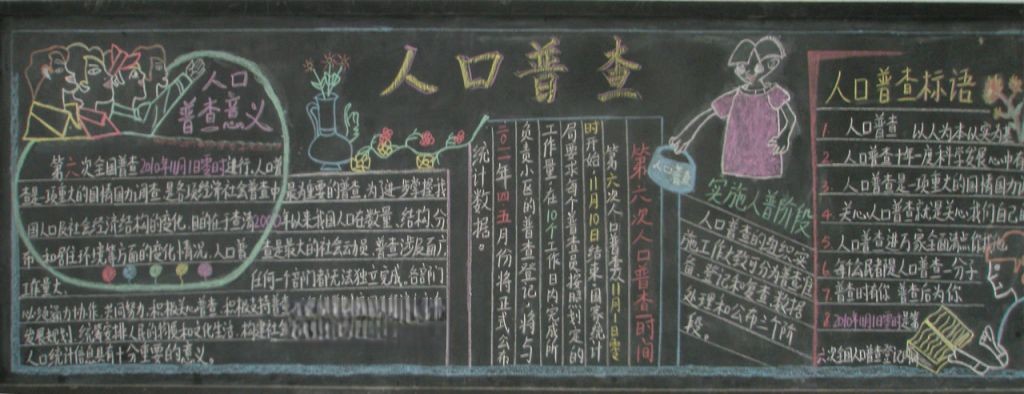 人口普查
人口
普查意义
第六次全国普查2010年11月1日零时进行,人口普
查是一项重大的国情国力调查,是各项经济社会普查中最为重要的普查,为进一步掌握我
国人口及社会经济结构的变化,目的在于查清2000年以来我国人口在数量、结构、分
布和居住环境等方面的变化情况,人口普查是最大的社会动员,普查涉及面广
工作量大 任何一个部门都无法独立完成,各部门
以及协力协作,共同努力,积极关心普查,积极支持普
发展规划,统筹安排人民的物质和文化生活,构建社会
人口统计信息具有十分重要的意义。
第六次人口普查时间
第六次人口普数11月1日零
时开始,11月10日结束,国家统计
局要求每个普查员按照划定的
工作量,在10个工作日内完成所
负责小区的普查登记,将与
二〇一一年四五月份将正式公布
统计数据。
实施人普阶段
人口普查的组织实
施工作大致可分为普查准
备、登记和复查、数据
处理和公布三个阶
段。
人口普查标语
1. 人口普查 以人为本从实
2. 人口普查十年一度科学发展心中有
3. 人口普查是一项重大的国情国力
4. 关心人口普查就是关心我们自己
5. 人口普查进万家全面清
6. 每个公民都是人口普查一分子
7. 普查时有你 普查后为你
8. 2010年11月1日零时是第
六次全国人口普查登记